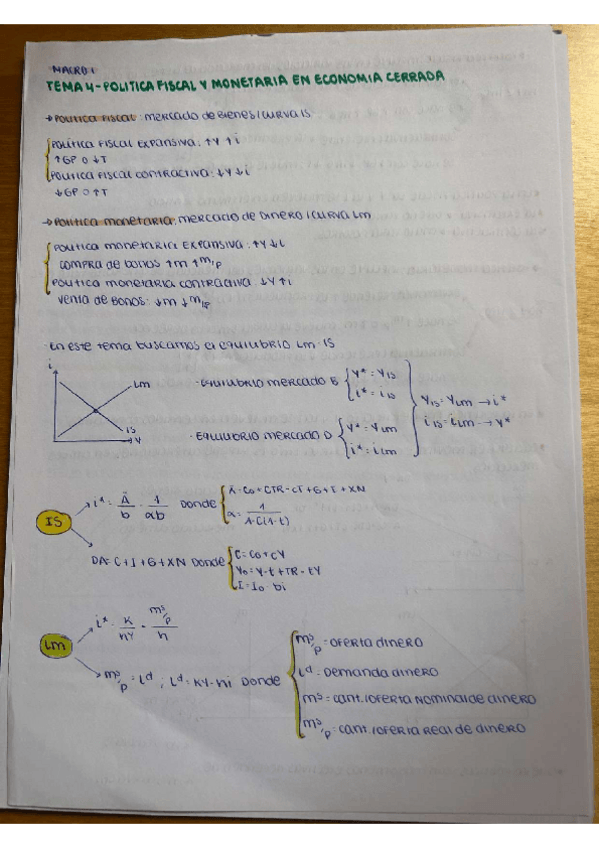 MACRO 1
TEMA 4 - POLITICA FISCAL Y MONETARIA EN ECONOMIA CERRADA
→ POLITICA FISCAL: MERCADO DE BIENES / CURVA IS
POLÍTICA FISCAL EXPANSIVA: ↑Y ↑i
↑GP O ↓T
POLITICA FISCAL CONTRACTIVA: ↓Y ↓i
↓GP O ↑T
→ POLITICA MONETARIA: MERCADO DE DINERO / CURVA LM
POLITICA MONETARIA EXPANSIVA: ↑Y ↓i
COMPRA DE BONOS ↑M ↑M/P
POLITICA MONETARIA CONTRACTIVA: ↓Y ↑i
VENTA DE BONOS: ↓M ↓M/P
En este tema buscamos el EQUILIBRIO LM-IS
i
LM
IS
Y
- EQUILIBRIO MERCADO B { Y* = YIS
i* = iIS
- EQUILIBRIO MERCADO D { Y* = YLM
i* = iLM
YIS = YLM → i*
iIS = iLM → Y*
IS
i* = Ā/b - 1/αb DONDE { Ā = C0 + CTR - CT + G + I + XN
α = 1/1-C(1-t)
DA = C + I + G + XN DONDE { C = C0 + CY
YD = Y - t + TR - tY
I = I0 - bi
LM
i* = K/hY - Ms/P/h
Ms/P = Ld ; Ld = KY - hi DONDE
Ms/P = OFERTA DINERO
Ld = DEMANDA DINERO
Ms = CANT. / OFERTA NOMINAL DE DINERO
Ms/P = CANT. / OFERTA REAL DE DINERO